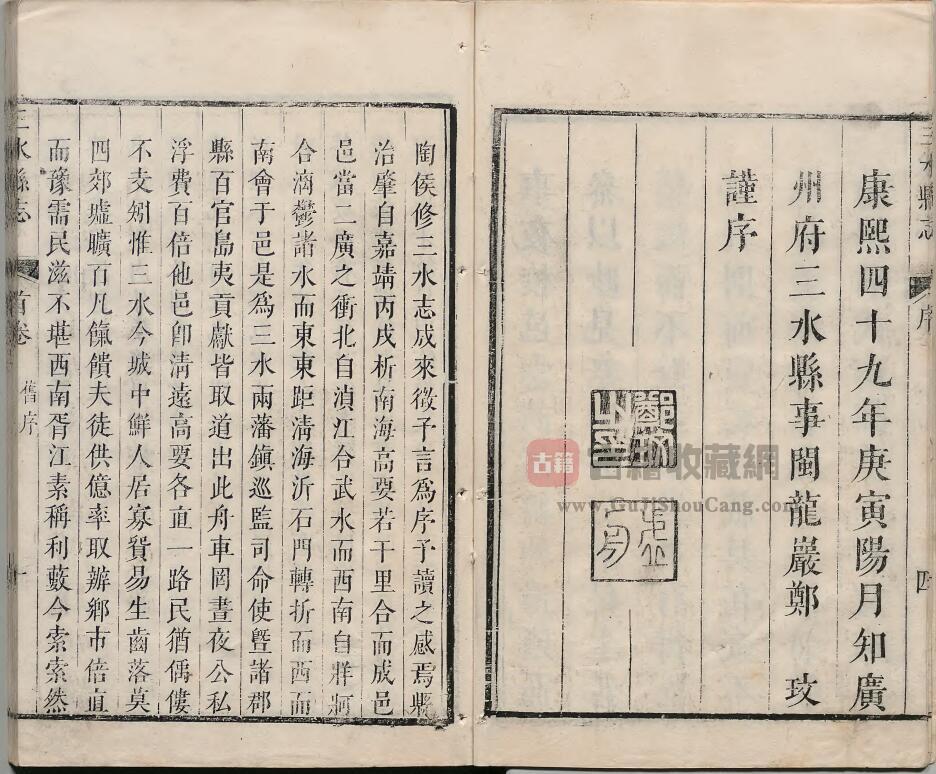 三水縣志
序
四
康熙四十九年庚寅陽月知廣
州府三水縣事閩龍巖鄭玫
謹序
鄭玫之印
古籍
古籍收藏網
www.GuJiShouCang.com
陶侯修三水志成來徵予言爲序予讀之感焉縣
治肇自嘉靖丙戌析南海高要若干里合而成邑
邑當二廣之衝北自湞江合武水而西南自牂牁
合漓鬱諸水而東東距清海沂石門轉折而西而
南會于邑是爲三水兩藩鎮巡監司命使曁諸郡
縣百官島夷貢獻皆取道出此舟車罔晝夜公私
浮費百倍他邑卽清遠高要各直一路民猶傴僂
不支矧惟三水今城中鮮人居寡貿易生齒落莫
四郊墟曠百凡餼饋夫徒供億率取辦鄉市倍直
而豫需民滋不堪西南胥江素稱利藪今索索然
三水縣志
首卷
舊序
一